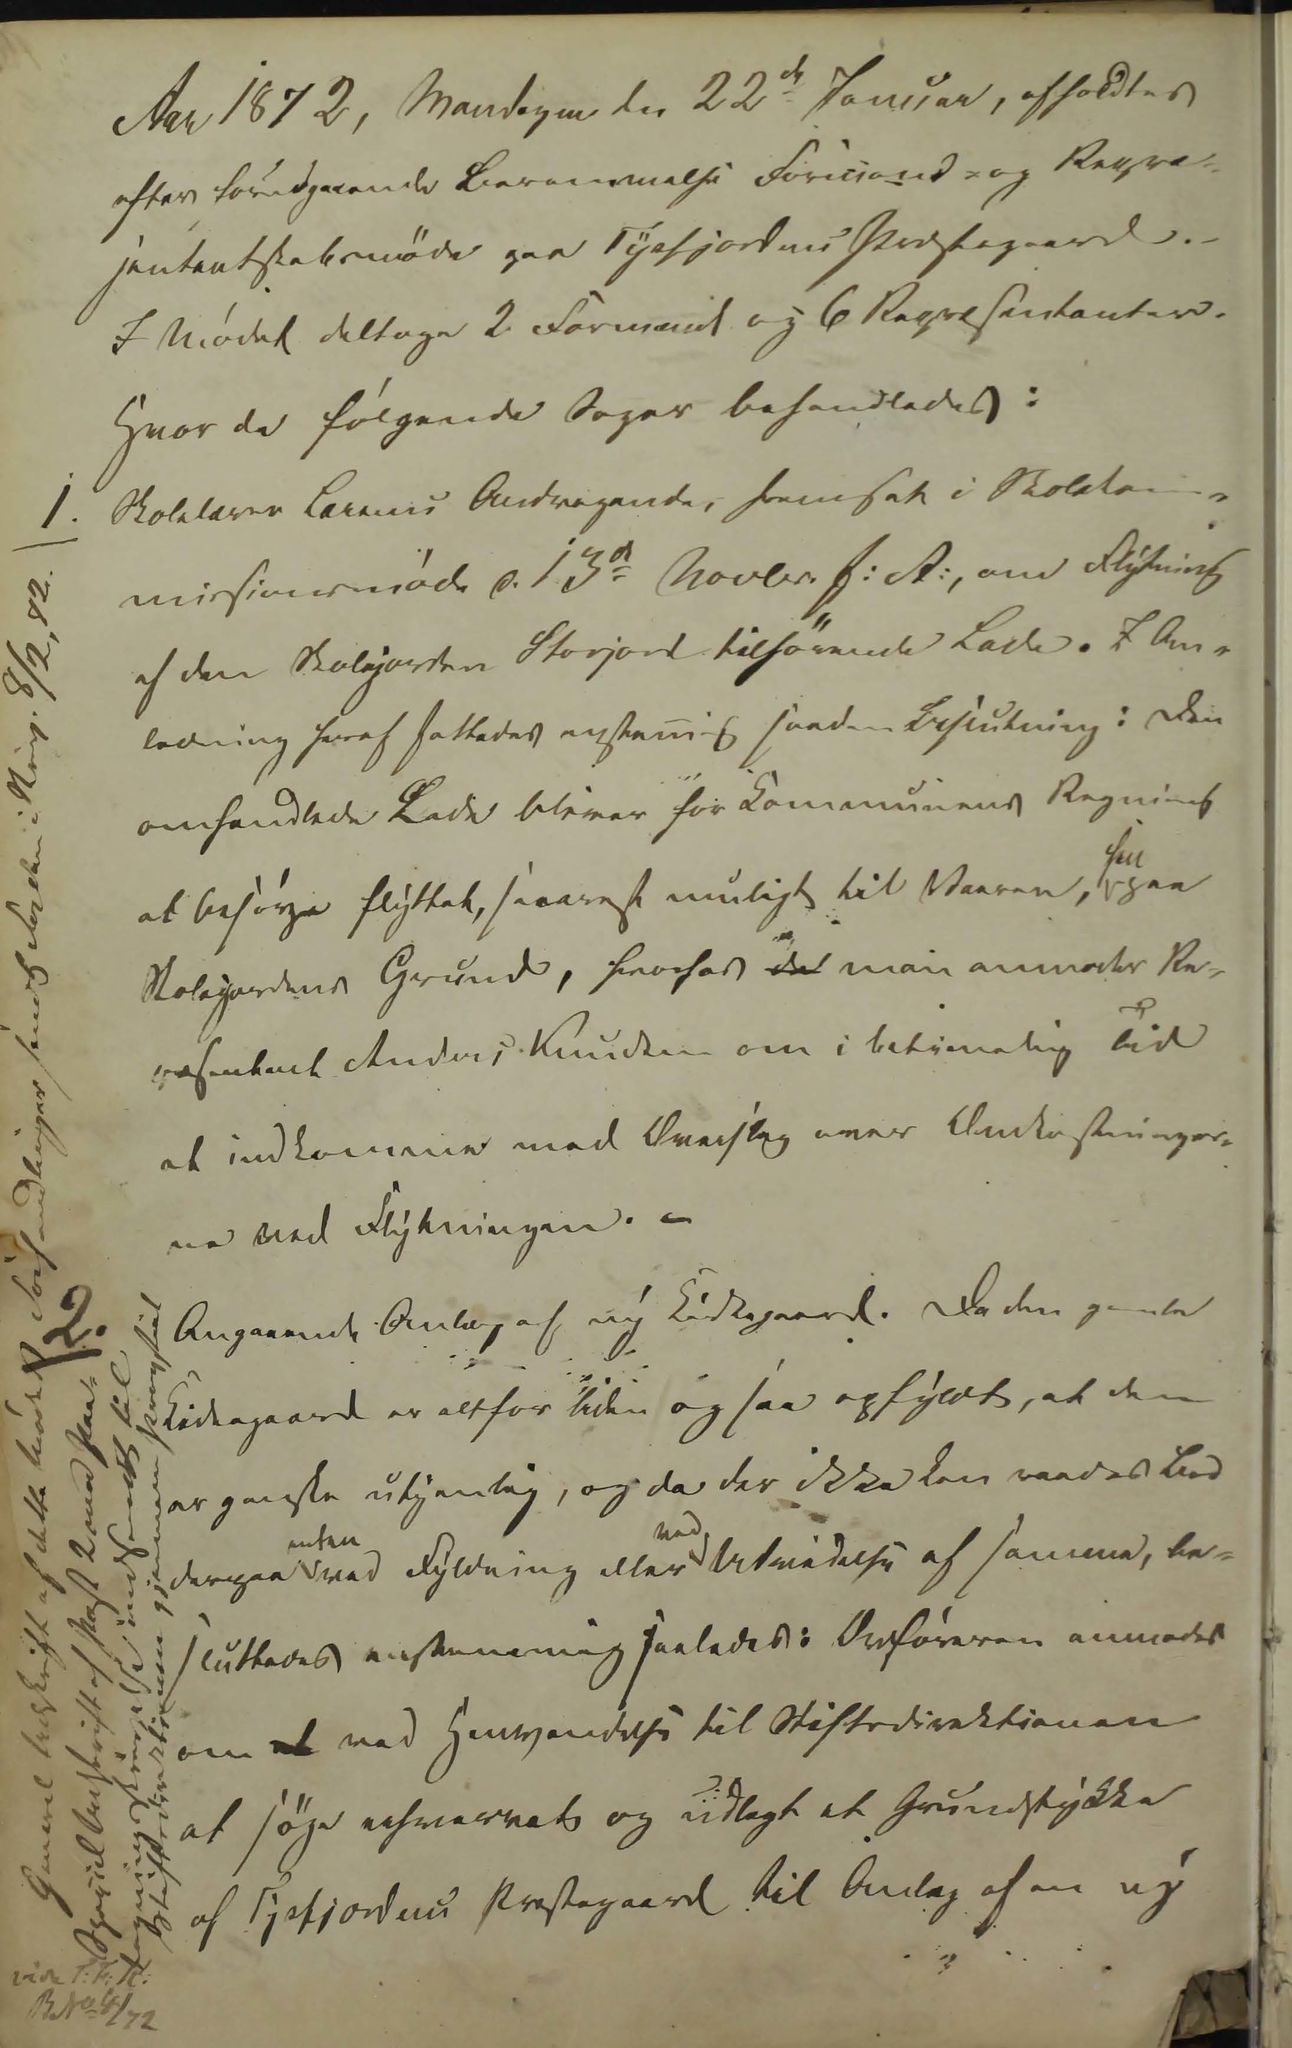 Aar 1872, Mandagen den 22de Januar, afholdtes
efter foregaaende Berammelse Formand- og Repræ-
sentantskabsmöde paa Tysfjordens Præstegaard.-
I Mödet deltoge 2 Formænd og 6 Repræsentanter.
Hvor da fölgende Sager behandledes:
1. Skolelærer Andragende, fremsat i Skolekom-
missionsmöde d. 13de Novbr. f: A:, om Flytning
af den Skolejorden Storjord tilhörende Lade. I An-
ledning heraf fattedes enstemig saadan Beslutning: Den
omhandlede Lade bliver for Kommunens Regning
at besörge flyttet, snarest muligt til Vaaren, hen paa
Skolejordens Grund, hvorhos man anmoder Re-
præsentant Anders Knudsen om i betimelig Tid
at indkomme med Overslag over Omkostninger-
ne ved Flytningen. -
2. Angaaende Anlæg af ny Kirkegaard. Da den gamle
Kirkegaard er altfor liden og saa opfyldt, at den
er ganske utjenlig, og da der ikke kan raades Bod
derpaa enten ved Fyldning eller ved Udvidelse af samme, be-
sluttedes enstemmig saaledes: Ordföreren anmodes
om ved Henvendelse til Stiftsdirektionen
at söge erhvervet og udlagt et Grundstykke
af Tysfjordens Præstegaard til Anlæg af en ny
Genarel Udskrift af dette Mödes Forhandlinger sendt Fogden i 8/2, 72.
Speciel Udskrift af Post 2 med
indsendt til
Stiftsdirektionen gjennem
vide T: F: K:
B. No 4/72